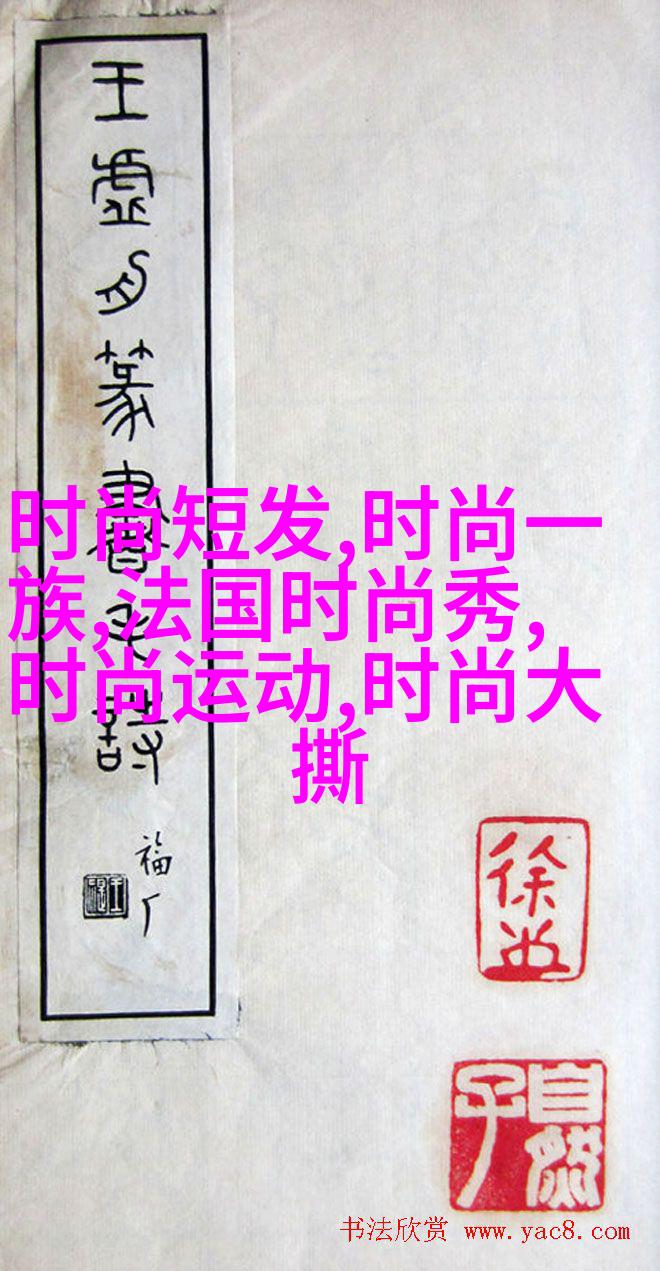 王虛舟篆書詩
福厂
时尚短发,时尚一
族,法国时尚秀,
时尚运动,时尚大
撕
书法欣赏 www.yac8.com